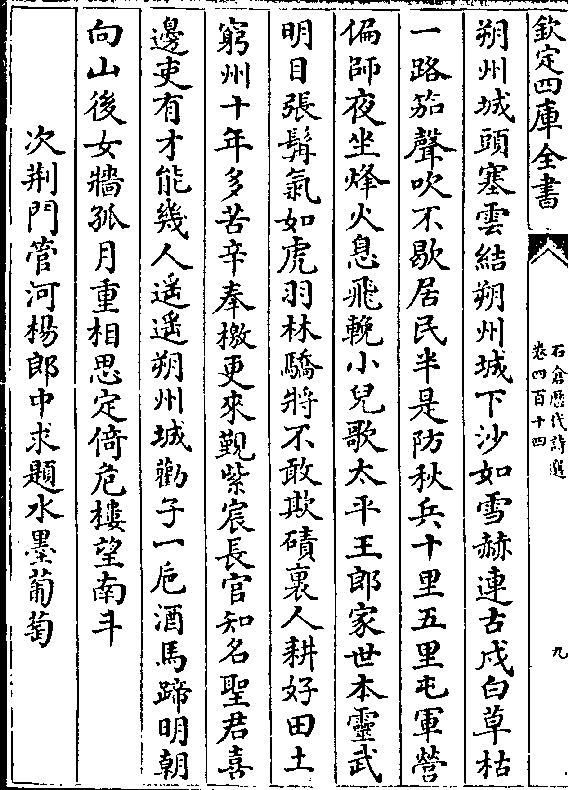 欽定四庫全書
石倉歷代詩選
卷四百十四
九
朔州城頭塞雲結朔州城下沙如雪赫連古戍白草枯
一路笳聲吹不歇居民半是防秋兵十里五里屯軍營
偏師夜坐烽火息飛輓小兒歌太平王郎家世本靈武
明目張髯氣如虎羽林驕將不敢欺磧裏人耕好田土
窮州十年多苦辛奉檄更來覲紫宸長官知名聖君喜
邊吏有才能幾人遥遥朔州城勸子一巵酒馬蹄明朝
向山後女牆孤月重相思定倚危樓望南斗
次荆門管河楊郎中求題水墨葡萄